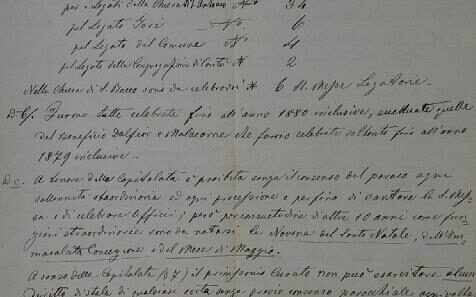 per i Legati della Chiesa di N° 34
pel Legato Fori N° 6
pel Legato del Comune N° 4
pel Legato della Congregazione di Carità N° 2
Nella Chiesa di S. Rocco sono da celebrarsi N° 6 SS. Messe Legatarie.
Furono tutte celebrate fino all'anno 1880 inclusive, eccettuate quelle
del Beneficio Dalfior e Malacarne che furono celebrate soltanto fino all'anno
1879 inclusive.
A tenore della Capitolata è proibita senza il consenso del paroco ogni
solennità straordinaria ed ogni processione e perfino di cantare la S. Mes-
sa e di celebrare Officii; però per consuetudine d'oltre 10 anni come fun-
zioni straordinarie sono da notarsi la Novena del Santo Natale, dell'Im-
macolata Concezione e del Mese di Maggio.
A senso della Capitolata (§ 7) il primissario Curato non può esercitare alcun
diritto di stola di qualsiasi sorta senza previo consenso parrocchiale